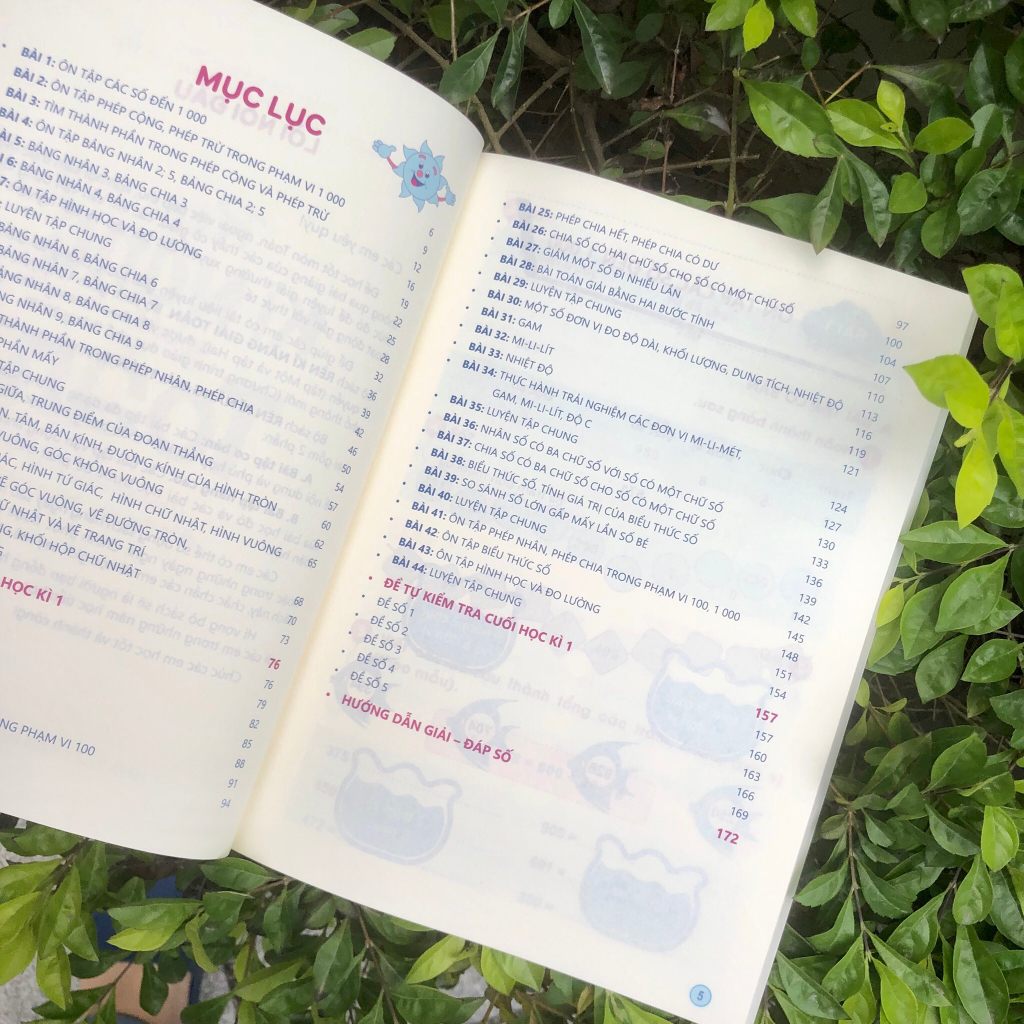 MỤC LỤC
BÀI 1: ÔN TẬP CÁC SỐ ĐẾN 1 000
BÀI 2: ÔN TẬP PHÉP CỘNG, PHÉP TRỪ TRONG PHẠM VI 1 000
BÀI 3: TÌM THÀNH PHẦN TRONG PHÉP CỘNG VÀ PHÉP TRỪ
BÀI 4: ÔN TẬP BẢNG NHÂN 2; 5, BẢNG CHIA 2; 5
BÀI 5: BẢNG NHÂN 3, BẢNG CHIA 3
6: BẢNG NHÂN 4, BẢNG CHIA 4
7: ÔN TẬP HÌNH HỌC VÀ ĐO LƯỜNG
LUYỆN TẬP CHUNG
BẢNG NHÂN 6, BẢNG CHIA 6
BẢNG NHÂN 7, BẢNG CHIA 7
NHÂN 8, BẢNG CHIA 8
NHÂN 9, BẢNG CHIA 9
THÀNH PHẦN TRONG PHÉP NHÂN, PHÉP CHIA
PHẦN MẤY
TẬP CHUNG
GIỮA, TRUNG ĐIỂM CỦA ĐOẠN THẲNG
TÂM, BÁN KÍNH, ĐƯỜNG KÍNH CỦA HÌNH TRÒN
VUÔNG, GÓC KHÔNG VUÔNG
HÌNH TỨ GIÁC, HÌNH CHỮ NHẬT, HÌNH VUÔNG
GÓC VUÔNG, VẼ ĐƯỜNG TRÒN,
NHẬT VÀ VẼ TRANG TRÍ
KHỐI HỘP CHỮ NHẬT
HỌC KÌ 1
PHẠM VI 100
6
9
12
16
19
22
25
28
32
36
39
42
46
50
54
57
60
62
65
68
70
73
76
76
79
82
85
88
91
94
BÀI 25: PHÉP CHIA HẾT, PHÉP CHIA CÓ DƯ 97
BÀI 26: CHIA SỐ CÓ HAI CHỮ SỐ CHO SỐ CÓ MỘT CHỮ SỐ 100
BÀI 27: GIẢM MỘT SỐ ĐI NHIỀU LẦN 104
BÀI 28: BÀI TOÁN GIẢI BẰNG HAI BƯỚC TÍNH 107
BÀI 29: LUYỆN TẬP CHUNG 110
BÀI 30: MỘT SỐ ĐƠN VỊ ĐO ĐỘ DÀI, KHỐI LƯỢNG, DUNG TÍCH, NHIỆT ĐỘ 113
BÀI 31: GAM 116
BÀI 32: MI-LI-LÍT 119
BÀI 33: NHIỆT ĐỘ 121
BÀI 34: THỰC HÀNH TRẢI NGHIỆM CÁC ĐƠN VỊ MI-LI-MÉT,
GAM, MI-LI-LÍT, ĐỘ C 124
BÀI 35: LUYỆN TẬP CHUNG 127
BÀI 36: NHÂN SỐ CÓ BA CHỮ SỐ VỚI SỐ CÓ MỘT CHỮ SỐ 130
BÀI 37: CHIA SỐ CÓ BA CHỮ SỐ CHO SỐ CÓ MỘT CHỮ SỐ 133
BÀI 38: BIỂU THỨC SỐ, TÍNH GIÁ TRỊ CỦA BIỂU THỨC SỐ 136
BÀI 39: SO SÁNH SỐ LỚN GẤP MẤY LẦN SỐ BÉ 139
BÀI 40: LUYỆN TẬP CHUNG 142
BÀI 41: ÔN TẬP PHÉP NHÂN, PHÉP CHIA TRONG PHẠM VI 100, 1 000 145
BÀI 42: ÔN TẬP BIỂU THỨC SỐ 148
BÀI 43: ÔN TẬP HÌNH HỌC VÀ ĐO LƯỜNG 151
BÀI 44: LUYỆN TẬP CHUNG 154
ĐỀ TỰ KIỂM TRA CUỐI HỌC KÌ 1 157
ĐỀ SỐ 1 157
ĐỀ SỐ 2 160
ĐỀ SỐ 3 163
ĐỀ SỐ 4 166
ĐỀ SỐ 5 169
HƯỚNG DẪN GIẢI – ĐÁP SỐ 172
5